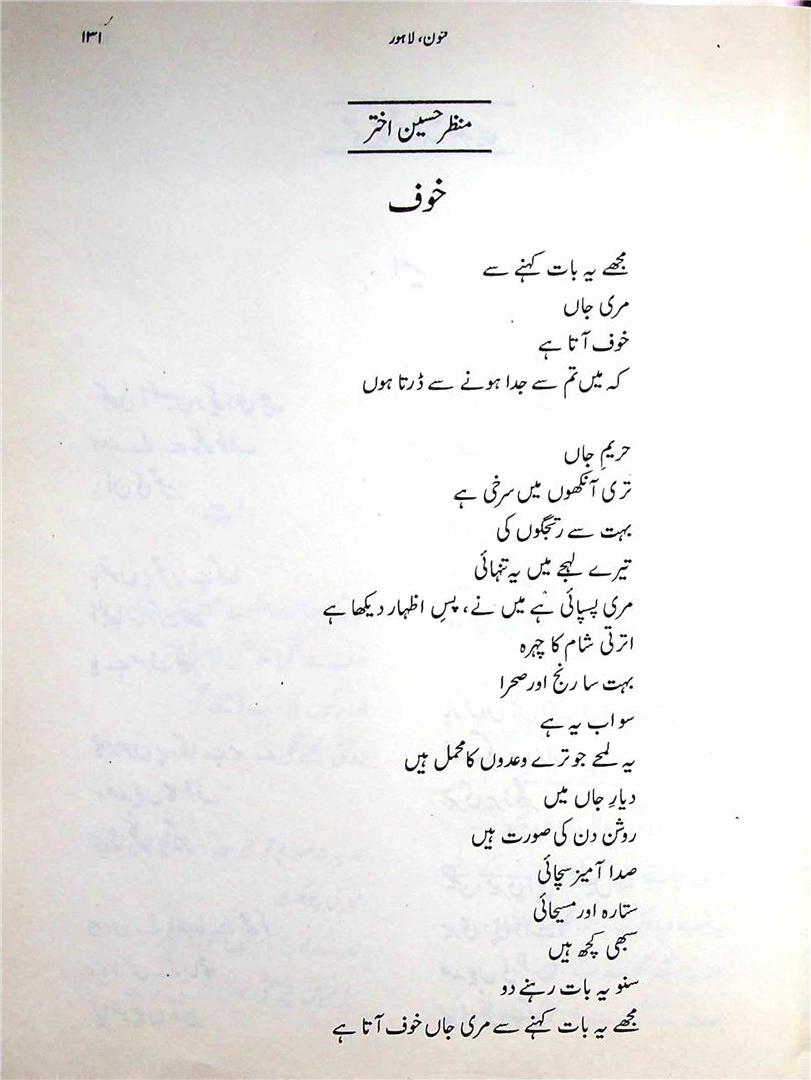 ۱۳۱
فنون، لاہور
منظر حسین اختر
خوف
مجھے یہ بات کہنے سے
مری جاں
خوف آتا ہے
کہ میں تم سے جدا ہونے سے ڈرتا ہوں
حریمِ جاں
تری آنکھوں میں سرخی ہے
بہت سے رتجگوں کی
تیرے لہجے میں یہ تنہائی
مری پسپائی ہے میں نے، پسِ اظہار دیکھا ہے
اترتی شام کا چہرہ
بہت سا رنج اور صحرا
سو اب یہ ہے
یہ لمحے جو ترے وعدوں کا محمل ہیں
دیارِ جاں میں
روشن دن کی صورت ہیں
صدا آمیز سچائی
ستارہ اور مسیحائی
سبھی کچھ ہیں
سنو یہ بات رہنے دو
مجھے یہ بات کہنے سے مری جاں خوف آتا ہے